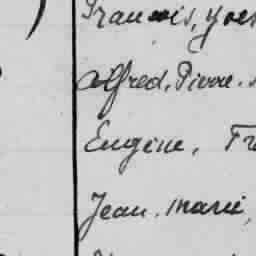 Francois, Yves
Alfred, Pierre.
Eugène, Fr
Jean. Marie,